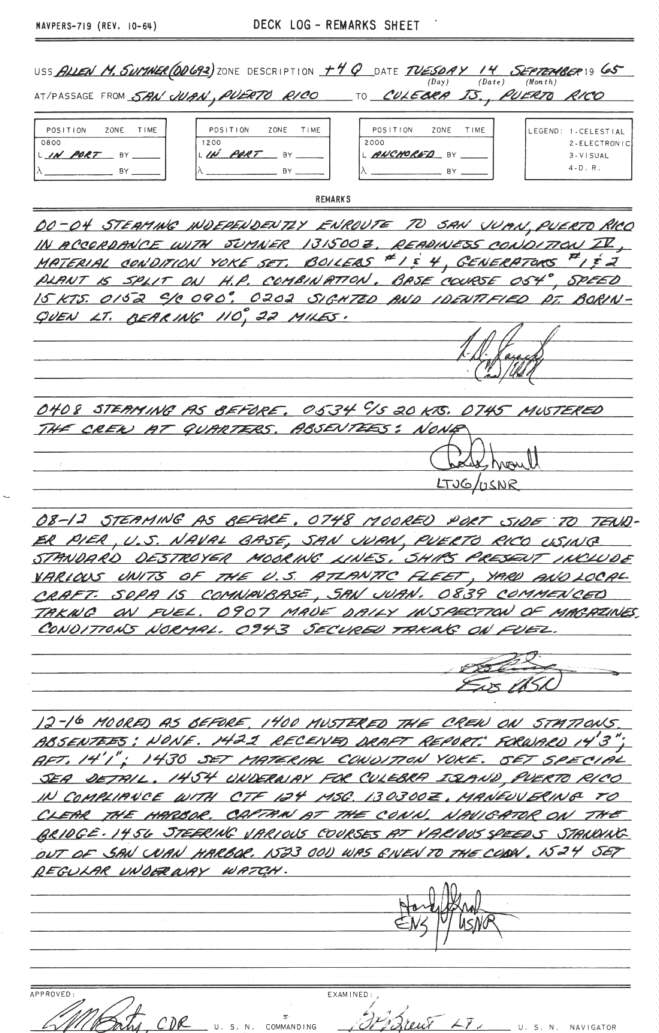 NAVPERS-719 (REV. 10-64) DECK LOG - REMARKS SHEET
USS ALLEN M. SUMNER (DD692) ZONE DESCRIPTION +4 Q DATE TUESDAY 14 SEPTEMBER 19 65
(Day) (Date) (Month)
AT/PASSAGE FROM SAN JUAN, PUERTO RICO TO CULEBRA IS., PUERTO RICO
POSITION ZONE TIME POSITION ZONE TIME POSITION ZONE TIME LEGEND: 1-CELESTIAL
0800 1200 2000 2-ELECTRONIC
L IN PORT BY L IN PORT BY L ANCHORED BY 3-VISUAL
λ BY λ BY λ BY 4-D. R.
REMARKS
00-04 STEAMING INDEPENDENTLY ENROUTE TO SAN JUAN, PUERTO RICO
IN ACCORDANCE WITH SUMNER 131500Z. READINESS CONDITION IV,
MATERIAL CONDITION YOKE SET. BOILERS #1 & 4, GENERATORS #1 & 2
PLANT IS SPLIT ON H.P. COMBINATION. BASE COURSE 054°, SPEED
15 KTS. 0152 C/C 090°. 0202 SIGHTED AND IDENTIFIED PT. BORIN-
QUEN LT. BEARING 110°, 22 MILES.
0408 STEAMING AS BEFORE. 0534 C/S 20 KTS. 0745 MUSTERED
THE CREW AT QUARTERS. ABSENTEES: NONE
LTJG/USNR
08-12 STEAMING AS BEFORE. 0748 MOORED PORT SIDE TO TEND-
ER PIER, U.S. NAVAL BASE, SAN JUAN, PUERTO RICO USING
STANDARD DESTROYER MOORING LINES. SHIPS PRESENT INCLUDE
VARIOUS UNITS OF THE U.S. ATLANTIC FLEET, YARD AND LOCAL
CRAFT. SOPA IS COMNAVBASE, SAN JUAN. 0839 COMMENCED
TAKING ON FUEL. 0907 MADE DAILY INSPECTION OF MAGAZINES.
CONDITIONS NORMAL. 0943 SECURED TAKING ON FUEL.
ENS USN
12-16 MOORED AS BEFORE. 1400 MUSTERED THE CREW ON STATIONS.
ABSENTEES: NONE. 1422 RECEIVED DRAFT REPORT: FORWARD 14'3";
AFT. 14'1"; 1430 SET MATERIAL CONDITION YOKE. SET SPECIAL
SEA DETAIL. 1454 UNDERWAY FOR CULEBRA ISLAND, PUERTO RICO
IN COMPLIANCE WITH CTF 124 MSG. 130300Z. MANEUVERING TO
CLEAR THE HARBOR. CAPTAIN AT THE CONN. NAVIGATOR ON THE
BRIDGE. 1456 STEERING VARIOUS COURSES AT VARIOUS SPEEDS STANDING
OUT OF SAN JUAN HARBOR. 1523 OOD WAS GIVEN TO THE CONN. 1524 SET
REGULAR UNDERWAY WATCH.
ENS/USNR
APPROVED: EXAMINED:
CDR U. S. N. COMMANDING LT. U. S. N. NAVIGATOR